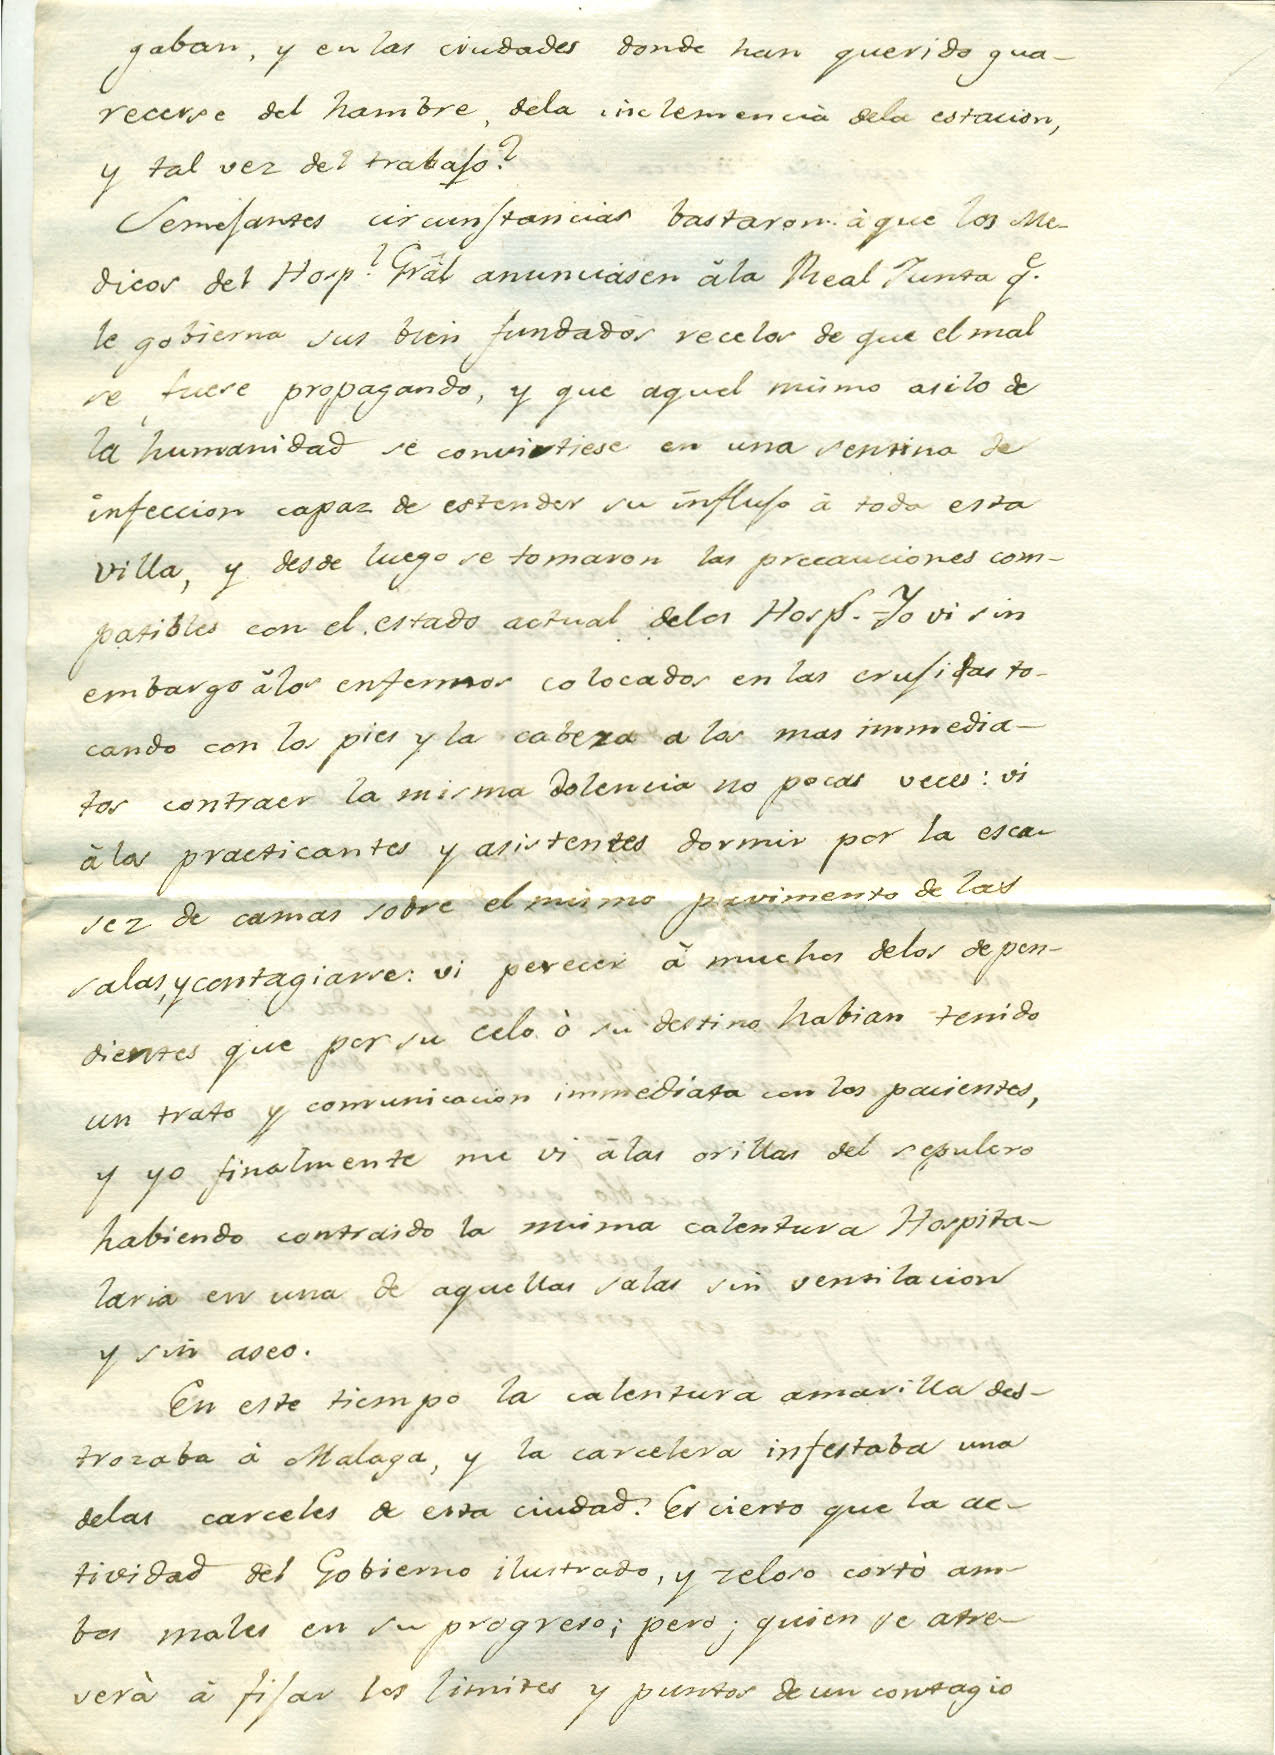 gaban, y en las ciudades donde han querido gua-
recerse del hambre, dela inclemencia dela estacion,
y tal vez del trabajo?
Semejantes circunstancias bastaron à que los Me-
dicos del Hosp.l Grãl anunciasen âla Real Junta q.e
le gobierna sus bien fundados recelos de que el mal
se fuese propagando, y que aquel mismo asilo de
la humanidad se convirtiese en una sentina de
infeccion capaz de estender su influjo à toda esta
villa, y desde luego se tomaron las precauciones com-
patibles con el estado actual delos Hosp.s - Yo vi sin
embargo âlos enfermos colocados en las crujidas to-
cando con los pies y la cabeza a los mas immedia-
tos contraer la misma dolencia no pocas veces: vi
âlos practicantes y asistentes dormir por la esca-
sez de camas sobre el mismo pavimento de las
salas, y contagiarse: vi perecer â muchos delos depen-
dientes que por su celo ò su destino habian tenido
un trato y comunicacion immediata con los pacientes,
y yo finalmente me vi âlas orillas del sepulcro
habiendo contraido la misma calentura Hospita-
laria en una de aquellas salas sin ventilacion
y sin aseo.
En este tiempo la calentura amarilla des-
trozaba à Malaga, y la carcelera infestaba una
delas carceles de esta ciudad? Es cierto que la ac-
tividad del Gobierno ilustrado, y zeloso cortò am-
bos males en su progreso; pero ¿ quien se atre-
verà à fijar los limites y puntos de un contagio